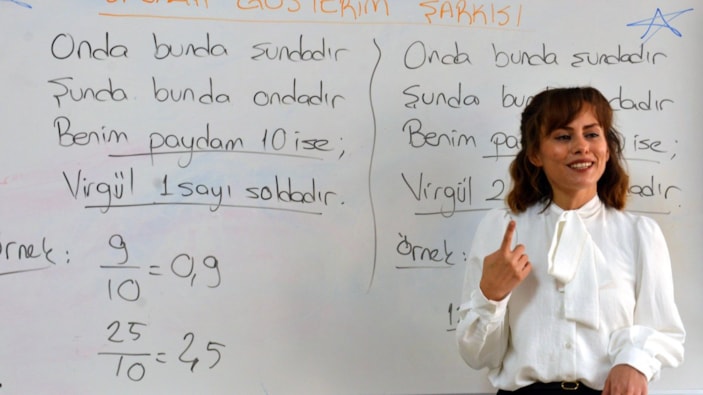 GÖSTERİM ŞARKISI
Onda bunda şundadır
Şunda bunda ondadır
Benim paydam 10 ise;
Virgül 1 sayı soldadır.
Örnek:
9/10 = 0,9
25/10 = 2,5
Onda bunda şundadır
Şunda
Benim ise;
Virgül 2
Örnek: